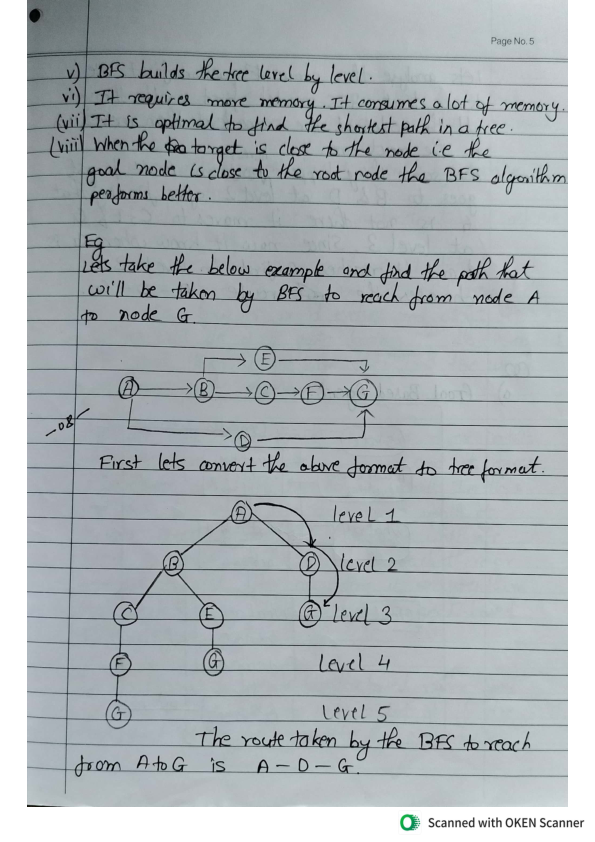 Page No. 5
v) BFS builds the tree level by level.
vi) It requires more memory. It consumes a lot of memory.
(vii) It is optimal to find the shortest path in a tree.
(viii) When the target is close to the node i.e the
goal node is close to the root node the BFS algorithm
performs better.
Eg
Lets take the below example and find the path that
will be taken by BFS to reach from node A
to node G.
E
A B C F G
-08-
D
First lets convert the above format to tree format.
A level 1
B D level 2
C E G level 3
F G level 4
G level 5
The route taken by the BFS to reach
from A to G is A - D - G.
Scanned with OKEN Scanner